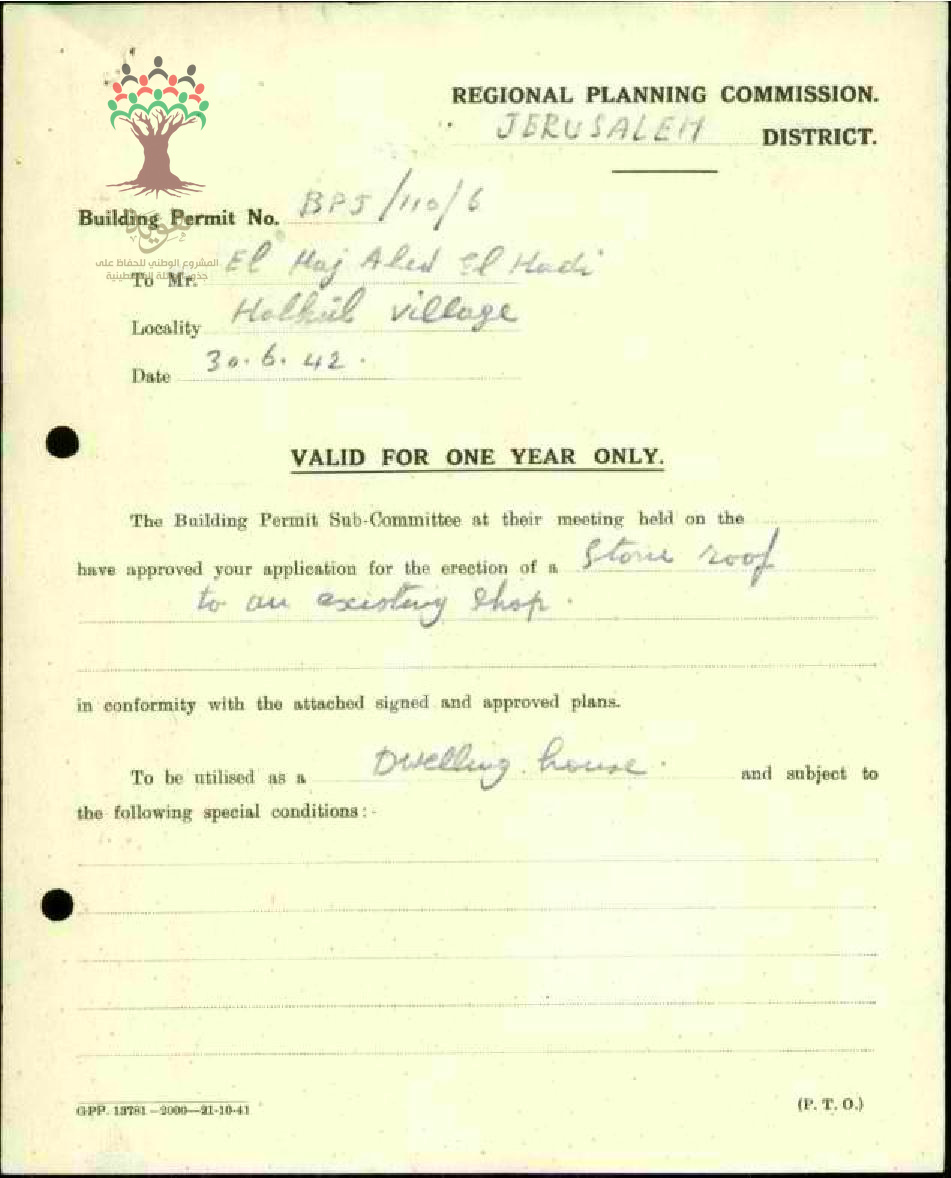 REGIONAL PLANNING COMMISSION.
JERUSALEM DISTRICT.
Building Permit No. BPJ/110/6
المشروع الوطني للحفاظ على
To Mr. El Haj Abed El Hadi
Locality Halhul village
Date 30.6.42.
VALID FOR ONE YEAR ONLY.
The Building Permit Sub-Committee at their meeting held on the
have approved your application for the erection of a Stone roof
to an existing shop.
in conformity with the attached signed and approved plans.
To be utilised as a Dwelling house. and subject to
the following special conditions:-
GPP. 13781—2000—21-10-41
(P. T. O.)